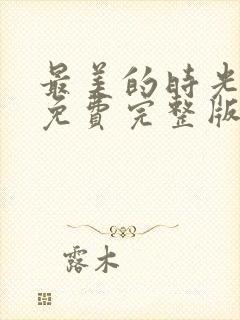 最美的時光
免費完整版
露木